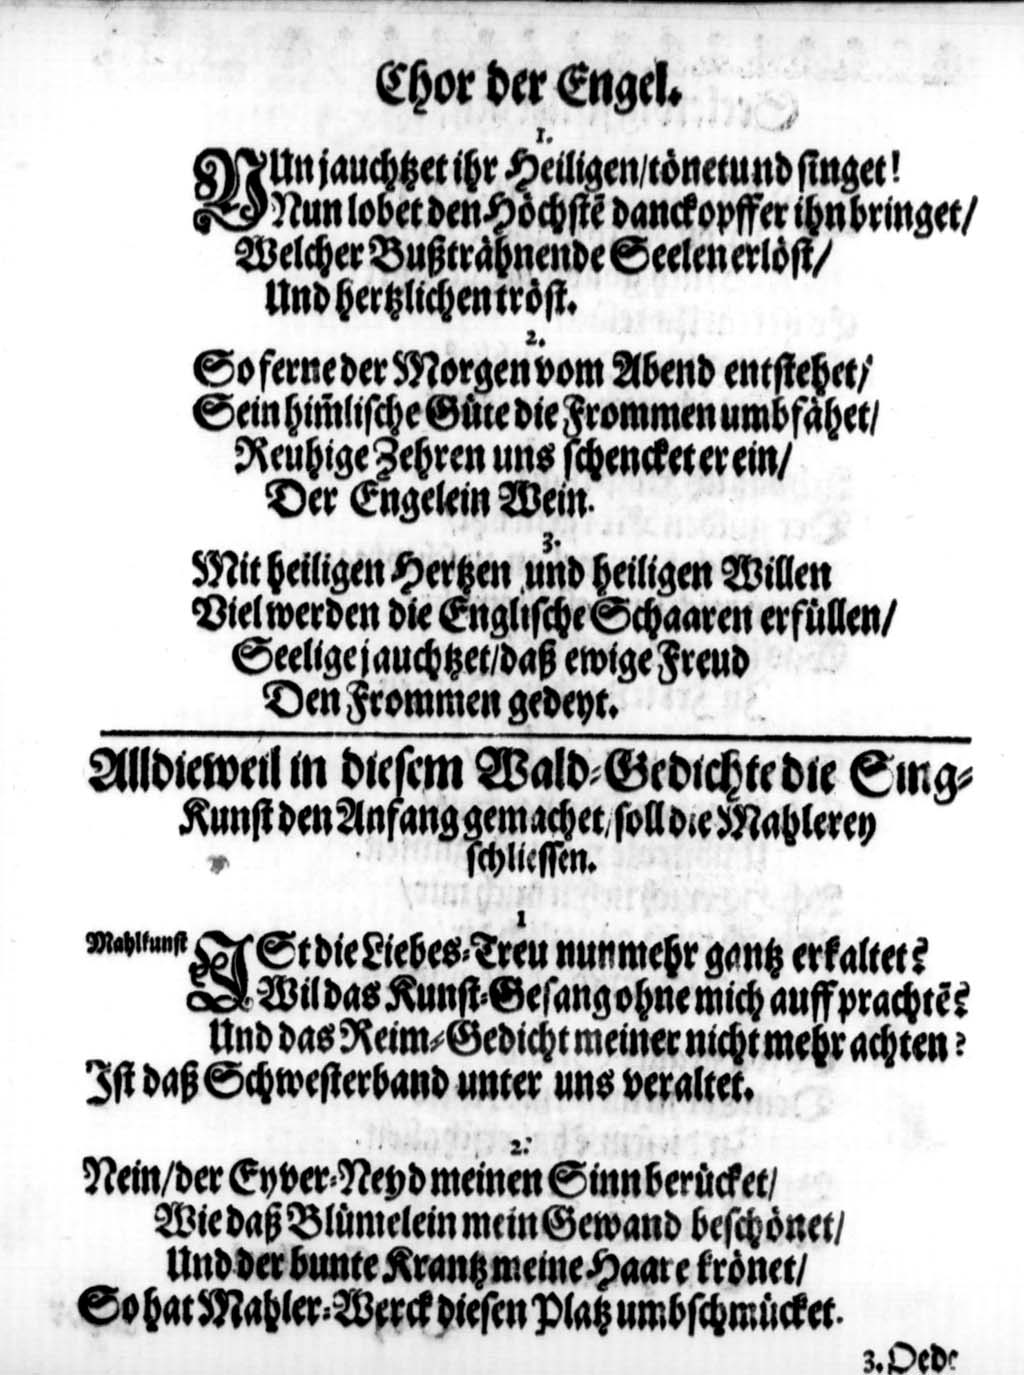 Chor der Engel.
1.
NUn jauchtzet ihr Heiligen/ tönet und singet!
Nun lobet den Höchstē danckopffer ihn bringet/
Welcher Bußträhnende Seelen erlöst/
Und hertzlichen tröst.
2.
So ferne der Morgen vom Abend entstehet/
Sein him̄lische Güte die Frommen umbfähet/
Reuhige Zehren uns schencket er ein/
Der Engelein Wein.
3.
Mit heiligen Hertzen und heiligen Willen
Viel werden die Englische Schaaren erfüllen/
Seelige jauchtzet/ daß ewige Freud
Den Frommen gedeyt.
Alldieweil in diesem Wald-Gedichte die Sing-
Kunst den Anfang gemachet/ soll die Mahlerey
schliessen.
1
Mahlkunst ISt die Liebes-Treu nunmehr gantz erkaltet?
Wil das Kunst-Gesang ohne mich auff prachtē?
Und das Reim-Gedicht meiner nicht mehr achten?
Ist daß Schwesterband unter uns veraltet.
2.
Nein/ der Eyver-Neyd meinen Sinn berücket/
Wie daß Blümelein mein Gewand beschönet/
Und der bunte Krantz meine Haare krönet/
So hat Mahler-Werck diesen Platz umbschmücket.
3. Oede